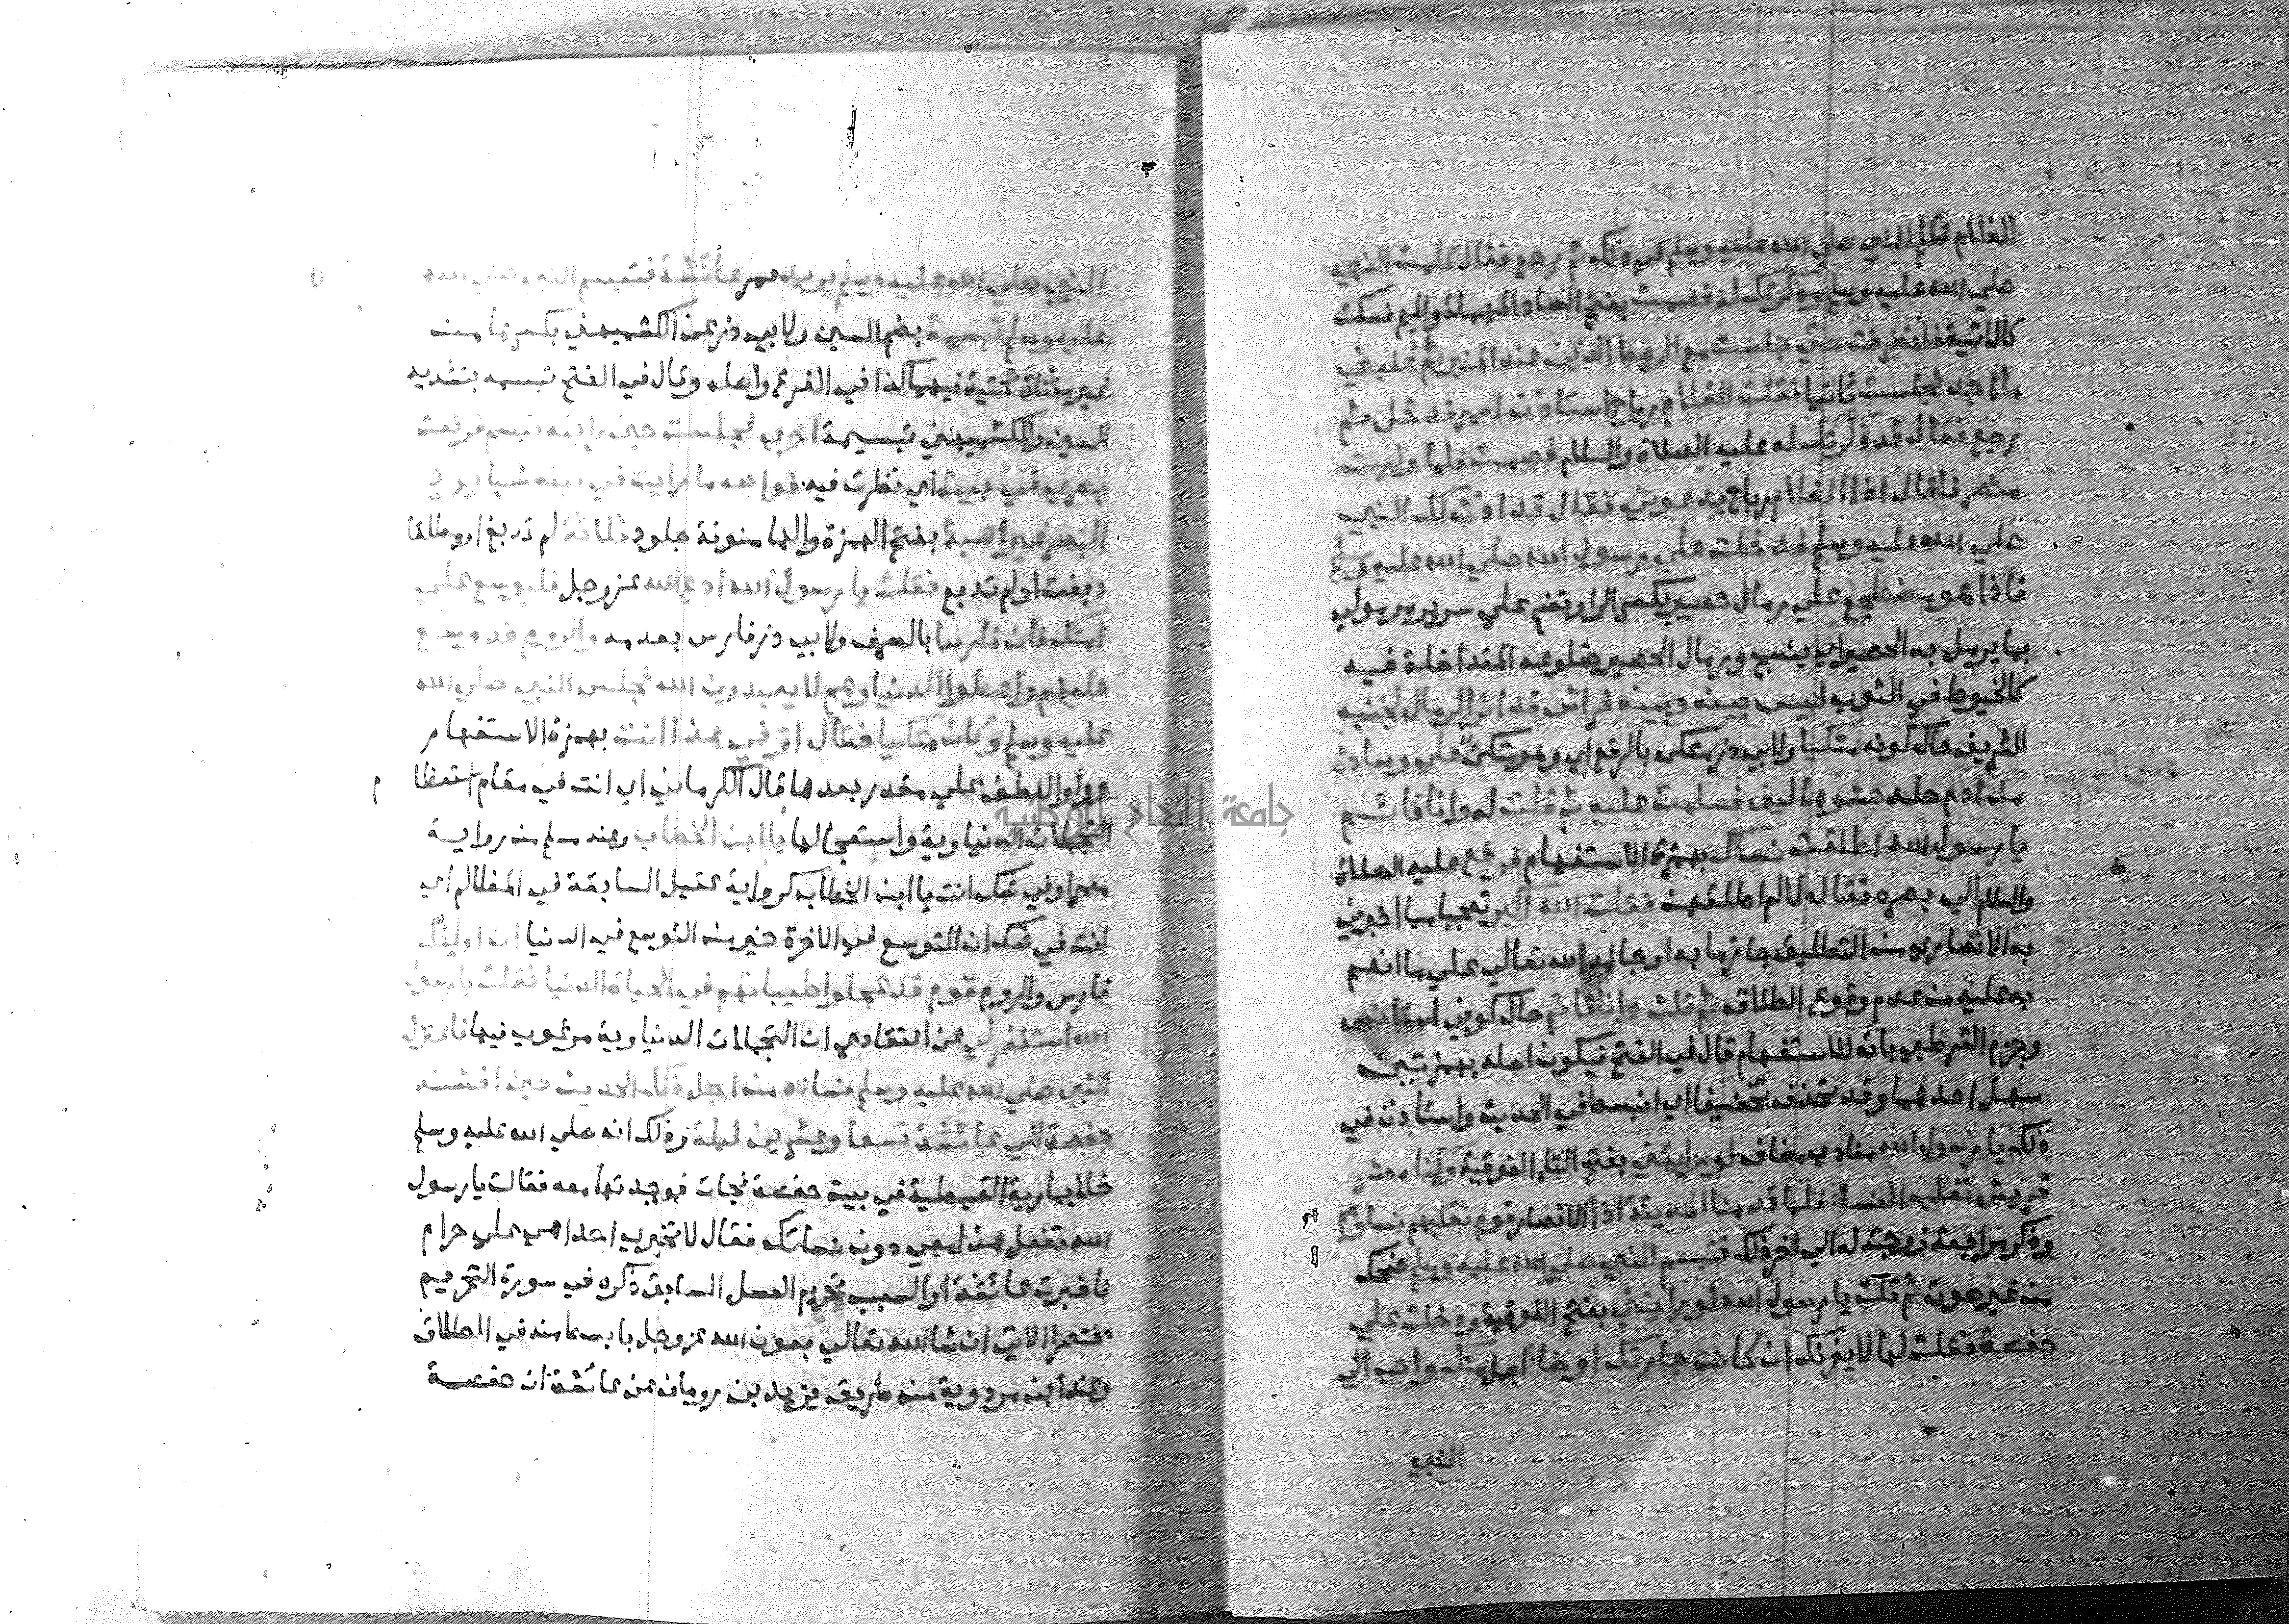 الغلام فكلم النبي صلي الله عليه وسلم في ذلك ثم رجع فقال كلمت النبي
صلي الله عليه وسلم وذكرتك له فصمت بفتح الصاد المهملة والميم فسكت
كالاتية فانصرفت حتي جلست مع الرهط الذين عند المنبر ثم غلبني
ما اجد فجلست ثانيا فقلت للغلام رباح استاذن لعمر فدخل ثم
رجع فقال قد ذكرتك له عليه الصلاة والسلام فصمت فلما وليت
منصرفا قال اذا الغلام رباح يدعوني فقال قد اذن لك النبي
صلي الله عليه وسلم فدخلت علي رسول الله صلي الله عليه وسلم
فاذا هو مضطجع علي رمال حصير بكسر الرا وتضم علي سرير مرمول
بما يرمل به الحصير اي ينسج ورمال الحصير ضلوعه المتداخلة فيه
كالخيوط في الثوب ليس بينه وبينه فراش قد اثر الرمال بجنبه
الشريف حال كونه متكيا ولابي ذر متكي بالرفع اي وهو متكئ علي وسادة
من ادم جلد حشوها ليف فسلمت عليه ثم قلت له وانا قائم
يا رسول الله اطلقت نساك بهمزة الاستفهام فرفع عليه الصلاة
والسلام الي بصره فقال لا لم اطلقهن فقلت الله اكبر تعجبا مما اخبرني
به الانصاري من التطليق جازما به او حامدا لله تعالي علي ما انعم
به عليه من عدم وقوع الطلاق ثم قلت وانا قائم حال كوني استانس
وجزم القرطبي بانه للاستفهام قال في الفتح فيكون اصله بهمزتين
سهل احدهما وقد تحذف تخفيفا اي انبسط في الحديث واستاذن في
ذلك يا رسول الله منادي مضاف لو رايتني بفتح التاء الفوقية وكنا معشر
قريش نغلب النساء فلما قدمنا المدينة اذا الانصار قوم تغلبهم نساوهم
وذكر مراجعة زوجته له الي اخر ذلك فتبسم النبي صلي الله عليه وسلم ضحك
من غير صوت ثم قلت يا رسول الله لو رايتني بفتح الفوقية ودخلت علي
حفصة فقلت لها لا يغرنك ان كانت جارتك اوضا اجمل منك واحب الي
النبي
النبي صلي الله عليه وسلم يريد عمر عائشة فتبسم النبي صلي الله
عليه وسلم تبسمة بضم السين ولابي ذر عن الكشميهني بكسرها من
غير مثناة تحتية فيهما كذا في الفرع واصله وقال في الفتح تبسمه بتشديد
السين وللكشميهني تبسيمة اخري فجلست حين رايته تبسم فرفعت
بصري في بيته اي نظرت فيه فوالله ما رايت في بيته شيا يرد
البصر غير اهبة بفتح الهمزة والها منونة جلود ثلاثة لم تدبغ او مطلقا
دبغت اولم تدبغ فقلت يا رسول الله ادع الله عز وجل فليوسع علي
امتك فان فارسا بالصرف ولابي ذر فارس بعدمه والروم قد وسع
عليهم واعطوا الدنيا وهم لا يعبدون الله فجلس النبي صلي الله
عليه وسلم وكان متكيا فقال اوفي هذا انت بهمزة الاستفهام
وواو العطف علي مقدر بعدها قال الكرماني اي انت في مقام استعظام
التجملات الدنياوية واستعجالها يا ابن الخطاب وعند مسلم من رواية
معمر اوفي شك انت يا ابن الخطاب كرواية عقيل السابقة في المظالم اي
انت في شك ان التوسع في الاخرة خير من التوسع في الدنيا ان اوليك
فارس والروم قوم قد عجلوا طيباتهم في الحياة الدنيا فقلت يا رسول
الله استغفر لي عن اعتقادي ان التجملات الدنياوية مرغوب فيها فاعتزل
النبي صلي الله عليه وسلم نساءه من اجل ذلك الحديث حين افشته
حفصة الي عائشة تسعا وعشرين ليلة وذلك انه صلي الله عليه وسلم
خلا بمارية القبطية في بيت حفصة فجات فوجدتها معه فقالت يا رسول
الله تفعل هذا معي دون نسائك فقال لا تخبري احدا هي علي حرام
فاخبرت عائشة او السبب تحريم العسل السابق ذكره في سورة التحريم
مختصرا الاتي ان شا الله تعالي بعون الله عز وجل بابسط منه في الطلاق
وعند ابن مردوية من طريق يزيد بن رومان عن عائشة ان حفصة
جامعة النجاح الوطنية